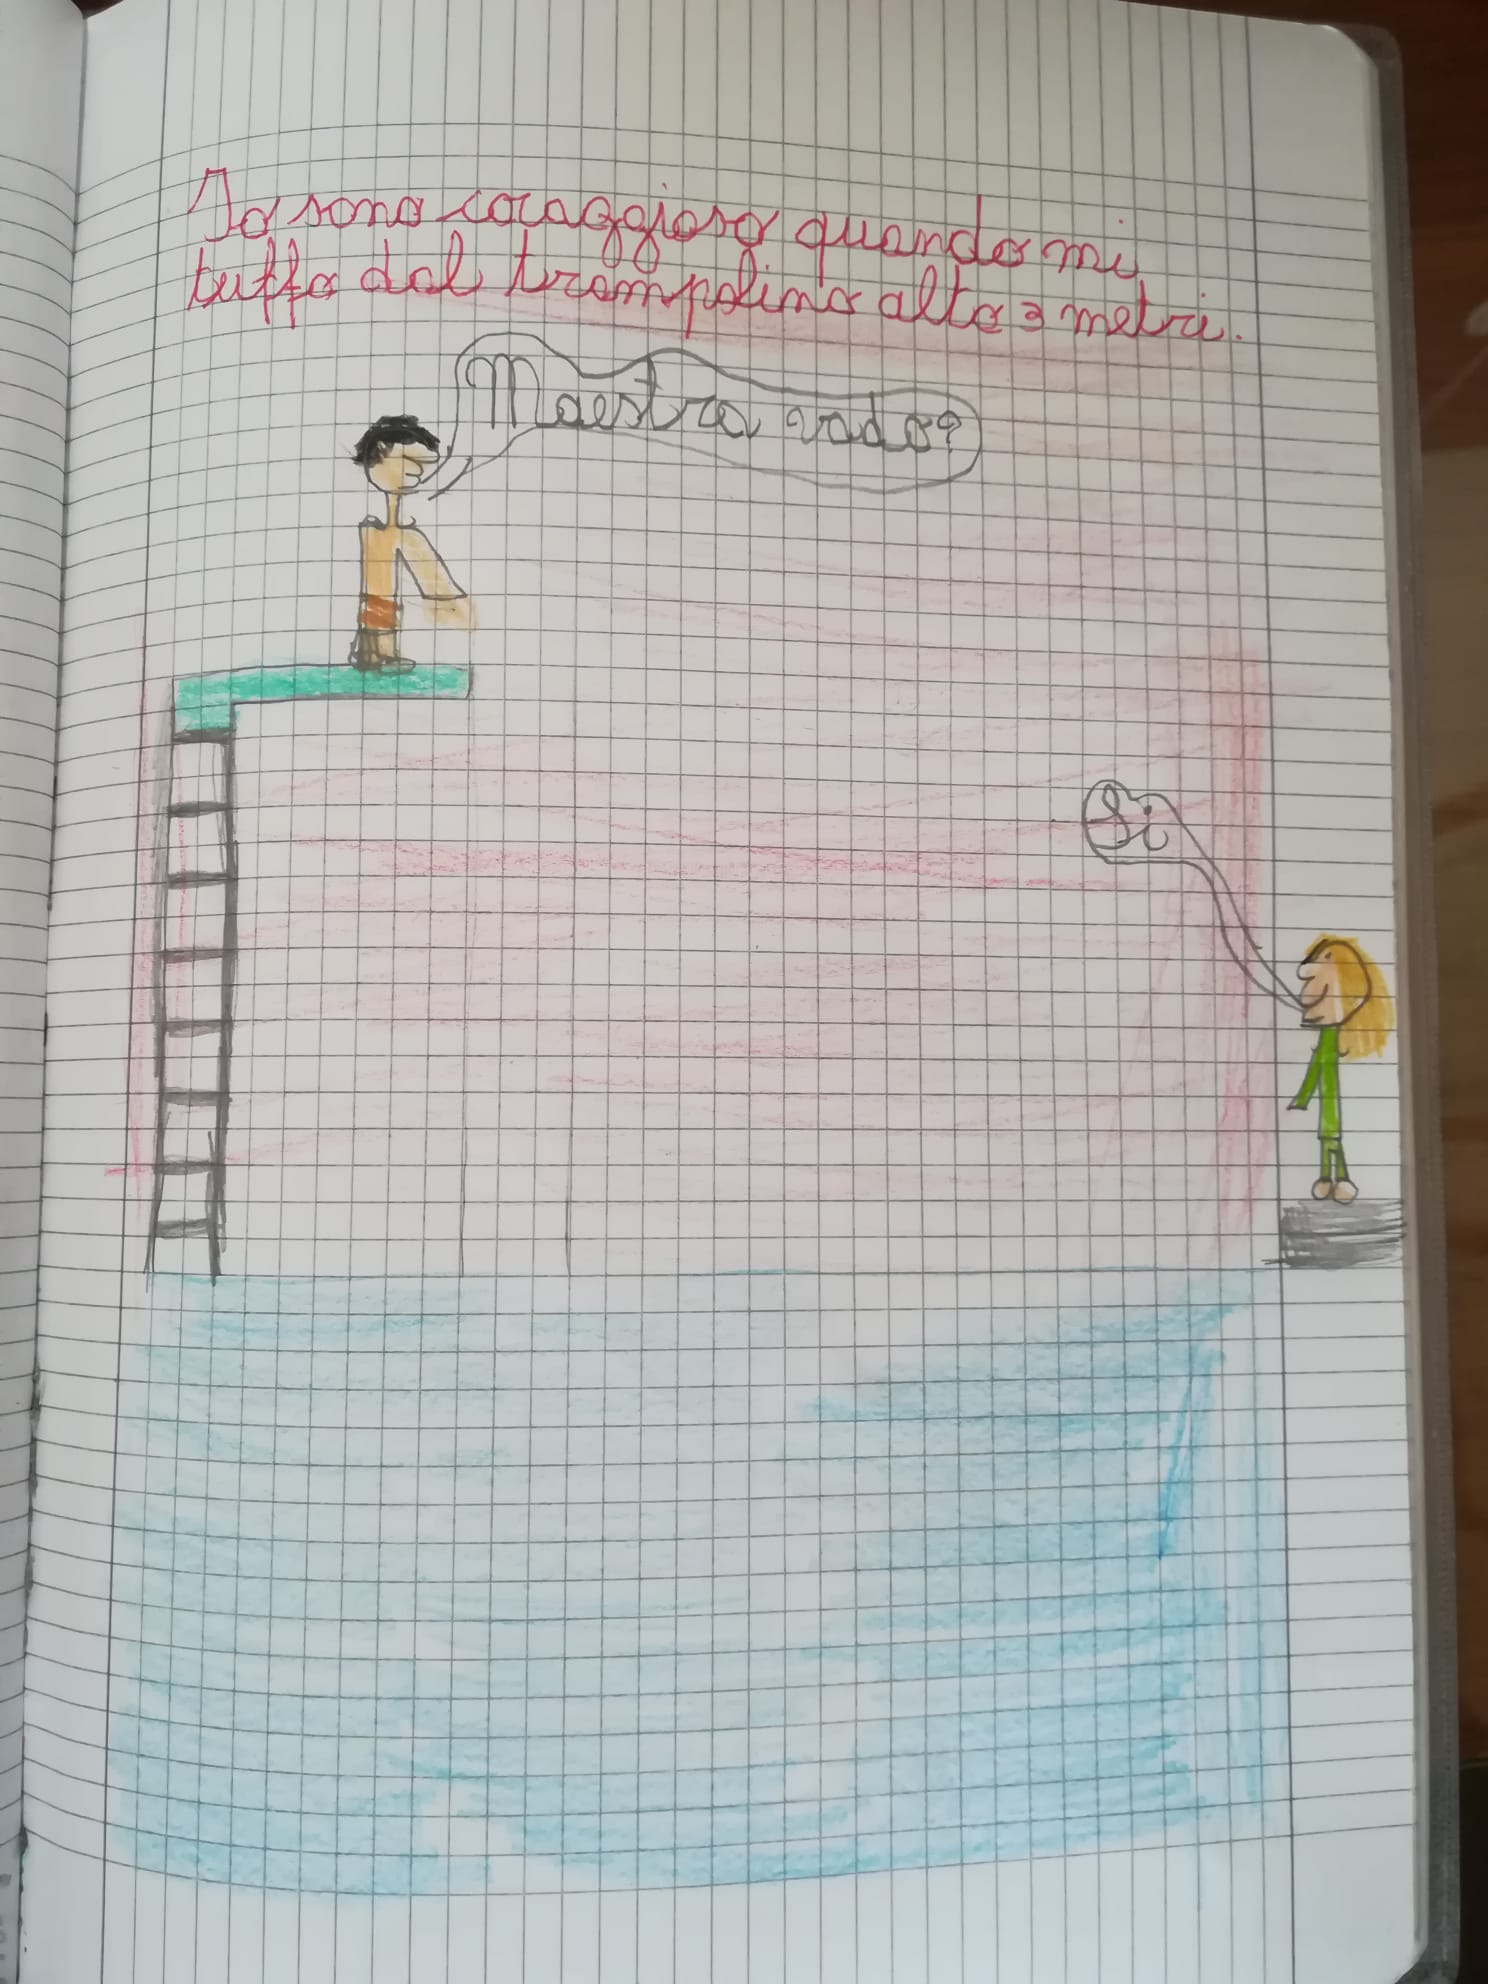 Io sono coraggioso quando mi
tuffo dal trampolino alto 3 metri.
Maestra vado?
Si